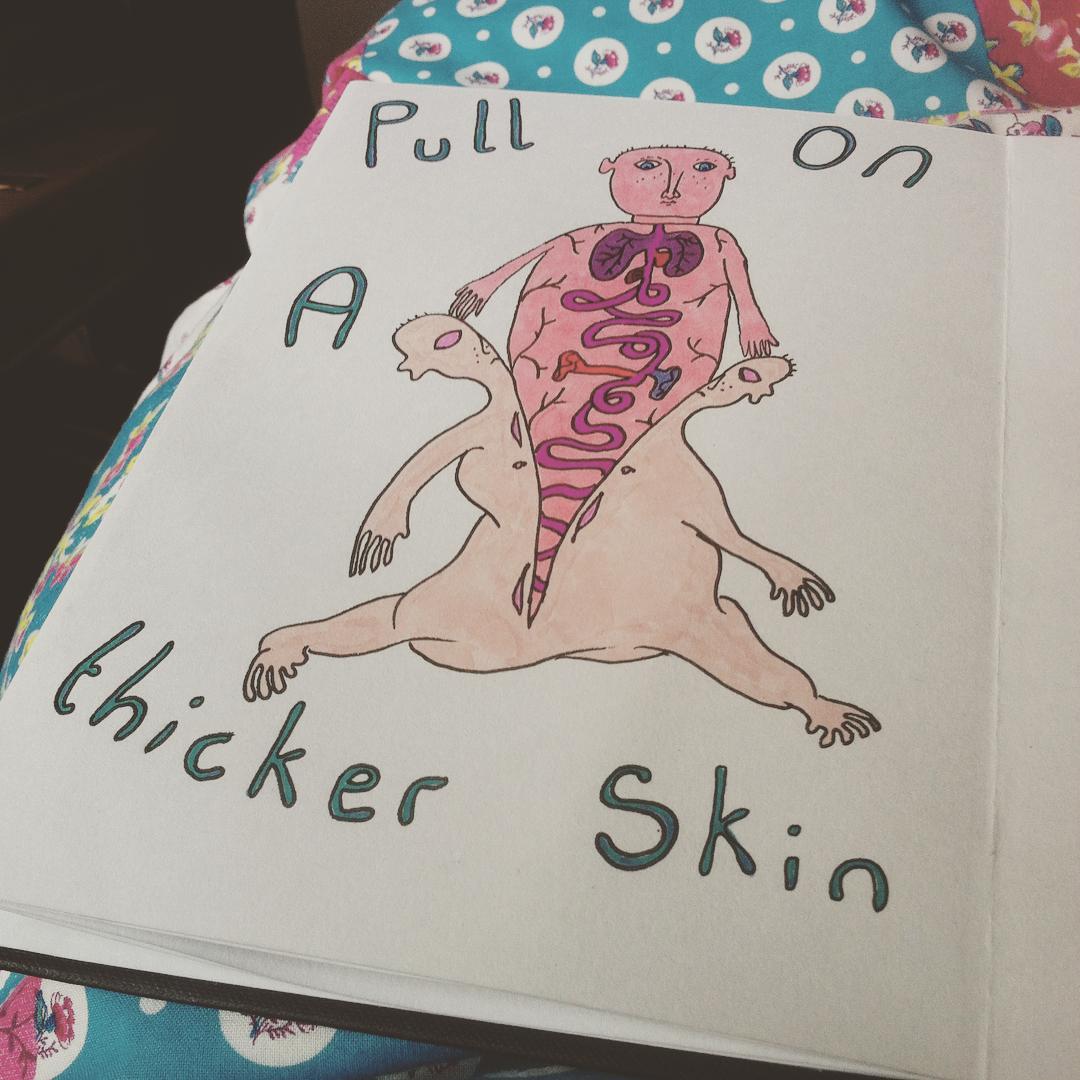 Pull On
A
thicker Skin